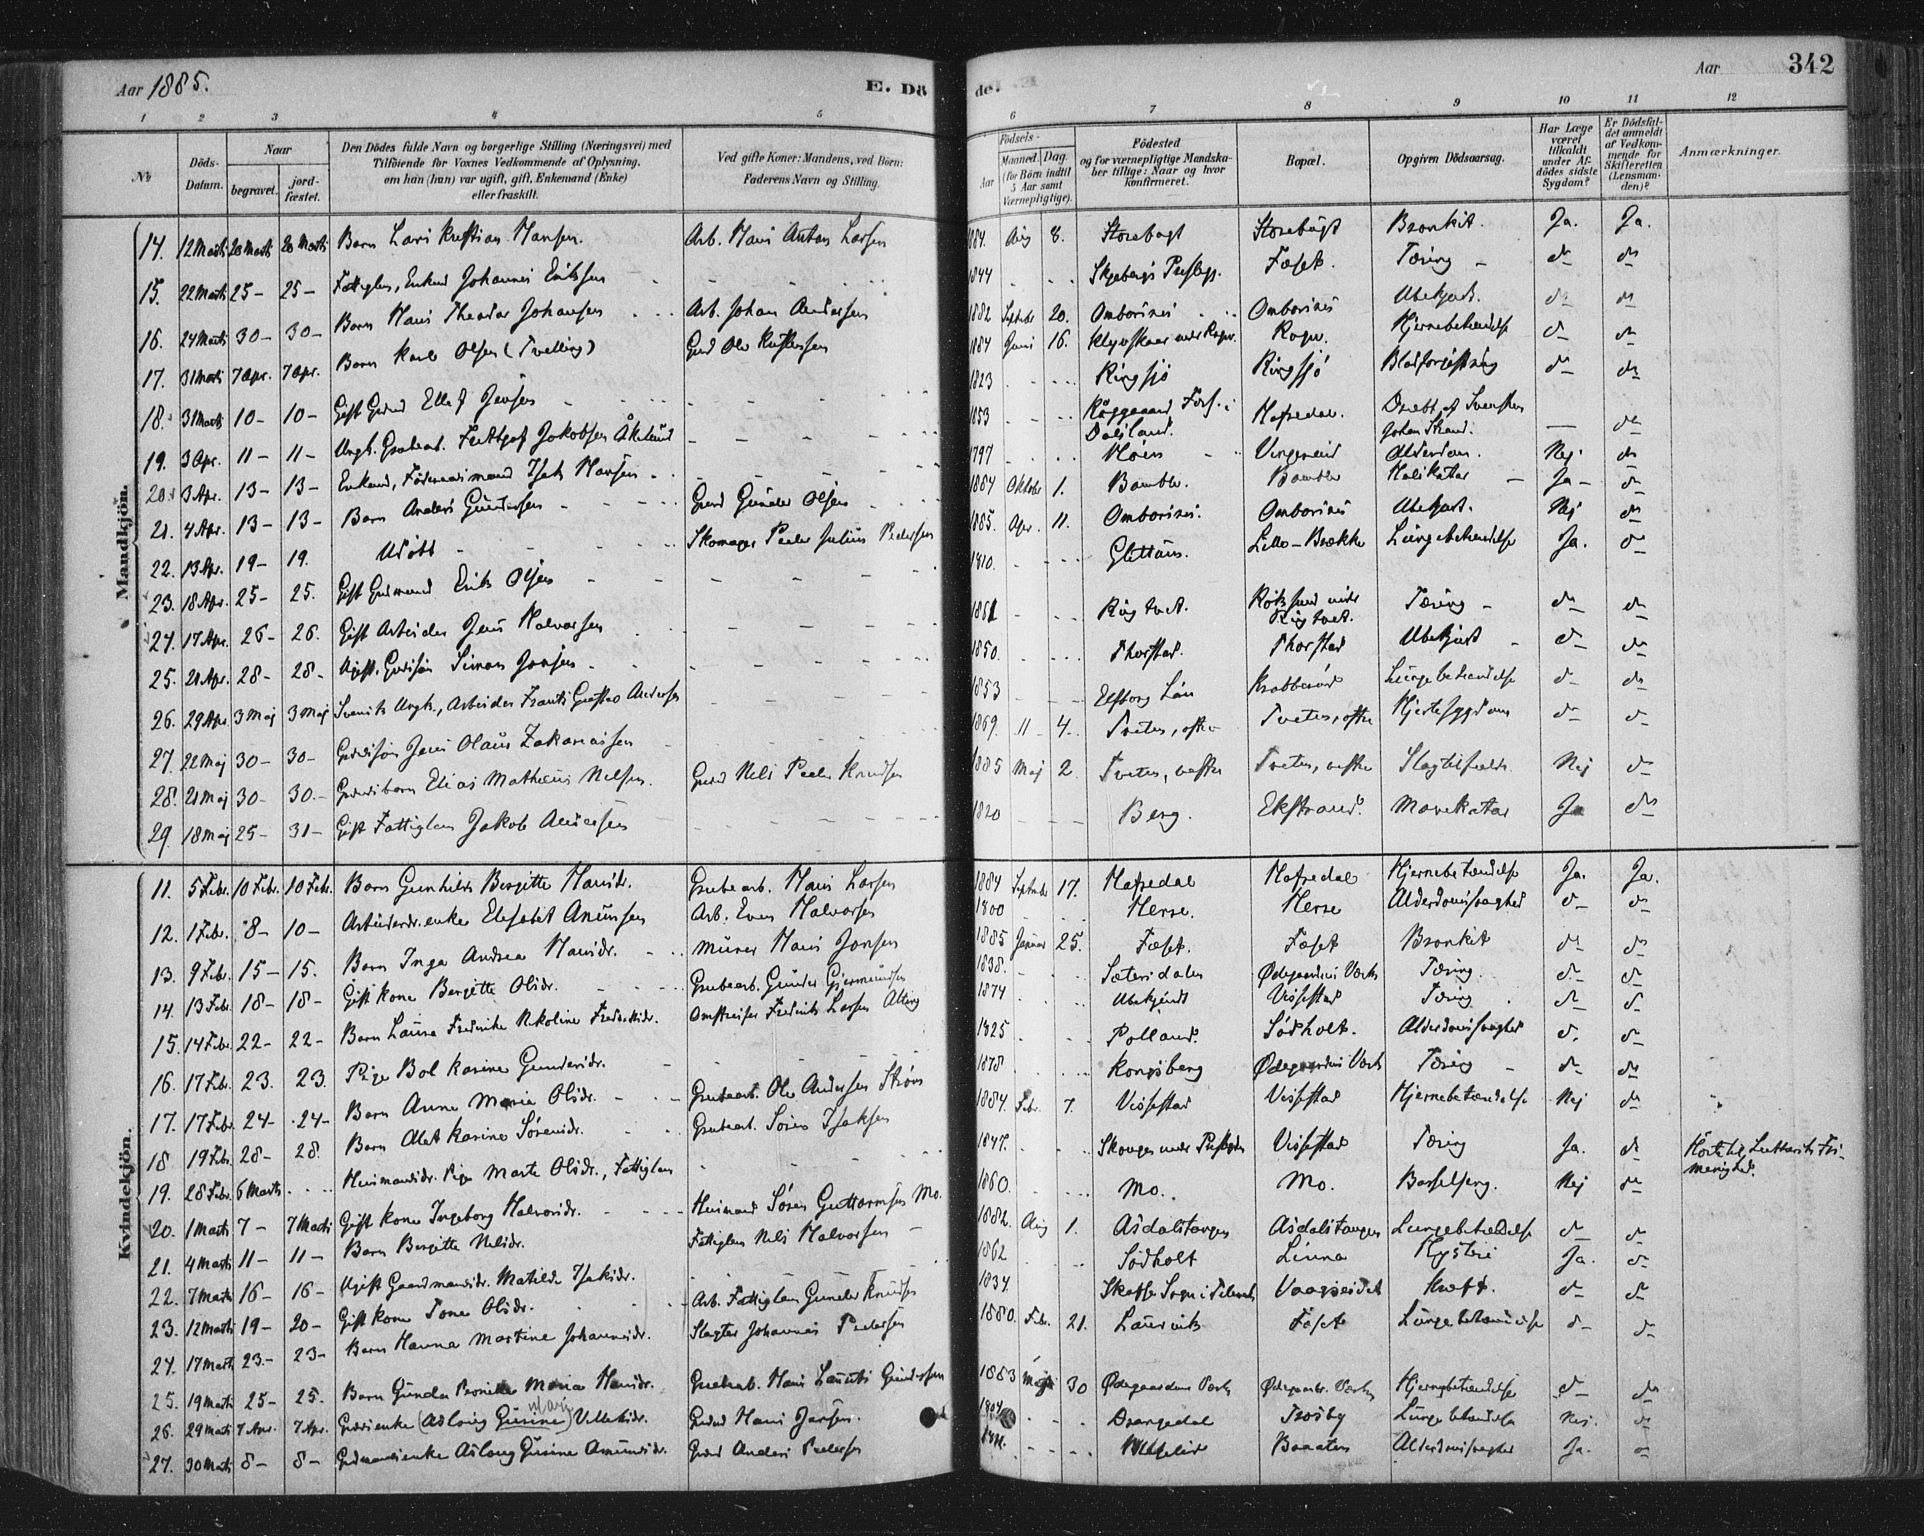 Aar 1885.
E. Dö
de.
Aar
342
1 2 3 4 5 6 7 8 9 10 11 12
No
Döds-Datum.
Naar
begravet.
jord-fæstet.
Den Dödes fulde Navn og borgerlige Stilling (Næringsvei) med
Tilföiende for Voxnes Vedkommende af Oplysning,
om han (hun) var ugift, gift, Enkemand (Enke)
eller fraskilt.
Ved gifte Koner: Mandens, ved Börn:
Faderens Navn og Stilling.
Födsels-
Aar
Maaned. Dag.
(for Börn indtil
5 Aar samt
Værnepligtige).
Födested
og for værnepligtige Mandska-
ber tillige: Naar og hvor
konfirmeret.
Bopæl.
Opgiven Dödsaarsag.
Har Læge
været
tilkaldt
under Af-
dödes sidste
Sygdom?
Er Dödsfal-
det anmeldt
af Vedkom-
mende for
Skifteretten
(Lensman-
den)?
Anmærkninger.
Mandkjön.
14. 12 Marts 20 Marts 20 Marts Barn Lars Kristian Hansen. Arb. Hans Anton Larsen 1884. Aug 8. Stosebugt Stosebugt Bronkit. Ja. Ja.
15. 22 Marts 25 – 25 – Fattiglem, Enkemd Johannes Eriksen 1844 Skjebergs Præstegj. Fæset. Tæring – do do
16. 24 Marts 30 – 30 – Barn Hans Theodor Johansen Arb. Johan Andersen 1882 Septebr 20. Omborsnes Omborsnes Ubekjendt. do do
17. 31 Marts 7 Apr. 7 Apr. Barn Karl Olsen (Tvelling) Gmd Ole Kristensen 1884 Juni 16. Rogn. Hjernebetændelse do do
18. 31 Marts 10 – 10 – Gift Gmd Ellef Jensen 1823 Ringsjö Ringsjö Blodforgiftning do do
19. 3 Apr. 11 – 11 – Ungk. Grubearb. Jakobsen Åkelund 1853 Dalsland. Hafsedal. Dræbt af Svensken Johan Strand. — do
20. 3 Apr. 13 – 13 – Enkemd, Föderaadsmand Isak Hansen 1797 Vingereid Alderdom. Nej. do
21. 4 Apr. 13 – 13 – Barn Anders Gundersen Gmd Gunder Olsen 1884 Oktober 1. Bamble. Bamble Halskatar Ja – do
22. 13 Apr. 19 – 19. Udöbt Skomager Peder Julius Pedersen 1885. Apr. 11. Omborsnes. Omborsnes Ubekjendt. Nej do
23. 18 Apr. 25 – 25. Gift Gmd Erik Olsen 1810. Lille-Brække Lungebetændelse Ja. do
24. 17 Apr. 26 – 26. Gift Arbeider Jens Halvorsen Ringtvet. Ringtvet. Tæring – do do
25. 21 Apr. 28 – 28 – Ugift Gmdssön Simon Jensen 1850. Thorstad. Thorstad Ubekjendt – do do
26. 29 Apr. 3 Maj 3 Maj Svensk Ungk., Arbeider Frants Gustav Andersen 1853 Elfsborg Län Krabberöd Lungebetændelse do do
27. 22 Maj 30 – 30 – Gmdssön Jens Olaus Zakariassen 1869. 11 4. Tveten, østre Tveten, østre Hjertesygdom do do
28. 21 Maj 30 – 30 – Gmdsbarn Elias Mathæus Nilsen. Gmd Nils Peder Knudsen 1885 Maj 2. Tveten, vestre Tveten, vestre Slagtilfælde. Nej do
29. 18 Maj 25 – 31 – Gift Fattiglem Jakob Andersen 1820 Berg. Ekstrand. Mavekatar Ja do
Kvindekjön.
11. 5 Febr. 10 Febr. 10 Febr. Barn Gunhild Bergitte Hansdr. Grubearb. Hans Larsen 1884 Septebr 17. Hafsedal Hafsedal Hjernebetændelse Ja. Ja.
12. 1 Febr. 8 – 10 – Arbeiderenke Elisabet Amundsen Arb. Even Halvorsen 1800 Herse. Herse Alderdomssvaghed do do
13. 9 Febr. 15 – 15. Barn Inga Andrea Hansdr. Murer Hans Jonsen 1885 Januar 25. Fæset. Fæset Bronkit do do
14. 13 Febr. 18 – 18 – Gift kone Bergitte Olsdr. Grubearb. Gunder Gjermundsen 1838. Sætersdalen Ødegaardens Værk Tæring. do do
15. 14 Febr. 22 – 22 – Barn Laura Fredrikke Nikoline Fredriksdr. Omstreifer Fredrik Larsen 1874 Ubekjendt Vissestad Tæring do do
16. 17 Febr. 23. 23. Pige Bol Karine Gundersdr. 1825 Polland. Södholt. Alderdomssvaghed do. do
17. 17 Febr. 24 – 24 – Barn Anne Marie Olsdr. Grubearb. Ole Andersen 1878 Kongsberg Ødegaardens Værk Tæring – do do
18. 19 Febr. 28 – 28. Barn Alet Karine Sörensdr. Grubearb. Sören Isaksen 1884. Febr. 7. Vissestad Vissestad Hjernebetændelse Nej do
19. 28 Febr. 6 Marts Husmandsdr. Pige Marte Olsdr., Fattiglem 1847. Vissestad Tæring Ja. do Hörte til Luthersk Frimenighed.
20. 1 Marts 7 – 7 Marts Gift kone Ingeborg Halvorsdr. Husmand Sören Guttormsen Mo. 1860. Mo. Mo. Barselseng. Nej do
21. 4 Marts 11 – 11 – Barn Bergitte Nilsdr. Fattiglem Nils Halvorsen 1882. Aug 1. Asdalstangen Asdalstangen Lungebetændelse do do
22. 7 Marts 16 – 16 – Ugift Gaardmandsdr. Matilde Isaksdr. 1862 Södholt Linna Hysteri Ja. do
23. 12 Marts 19 – 20 – Gift kone Tone Olsdr. Arb. Fattiglem Gunder Knudsen 1834. Kræft. do do
24. 17 Marts 23 – 23 – Barn Hanna Martine Johannesdr. Slagter Johannes Pedersen 1880. Febr. 21. Laurvik Fæset Lungebetændelse do do
25. 19 Marts 25 – 25. Barn Gunda Maria Hansdr. Grubearb. Hans Laurits Gundersen 1883 30 Ødegaardens Værk Ødegaardens Værk Hjernebetændelse do do
26. 29 Marts 7 Apr. 7 Apr. Gmdsenke (Aslaug Gurine) Marie Gmd Hans Jensen. 1804 Drangedal Trosby Lungebetændelse Nej. do
27. 30 Marts 8 – 8 – Gmdsenke Aslaug Gurine Amundsdr. Gmd Anders Pedersen Alderdomssvaghed Ja. do